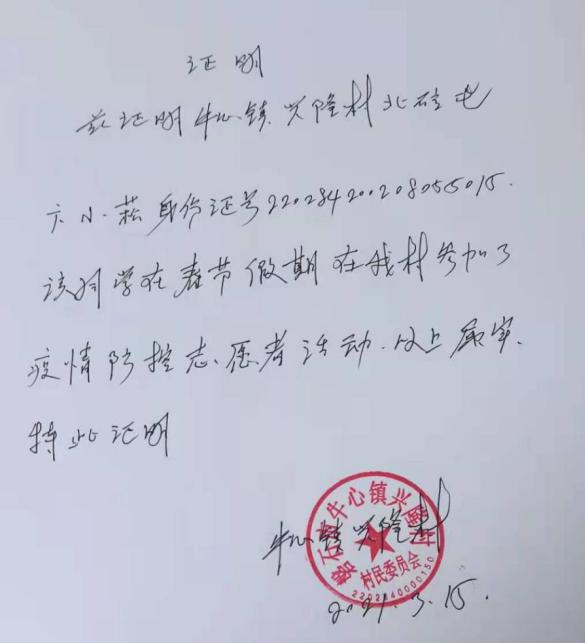 证明
兹证明牛心镇兴隆村北砬屯
六小菘身份证号220284200208055015.
该同学在春节假期在我村参加了
疫情防控志愿者活动.以上属实.
特此证明
磐石市牛心镇兴隆村
村民委员会
牛心镇兴隆村
2021.3.15.